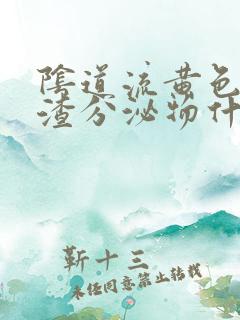 陰道流黄色
渣分泌物什
靳十三
未经同意禁止转载